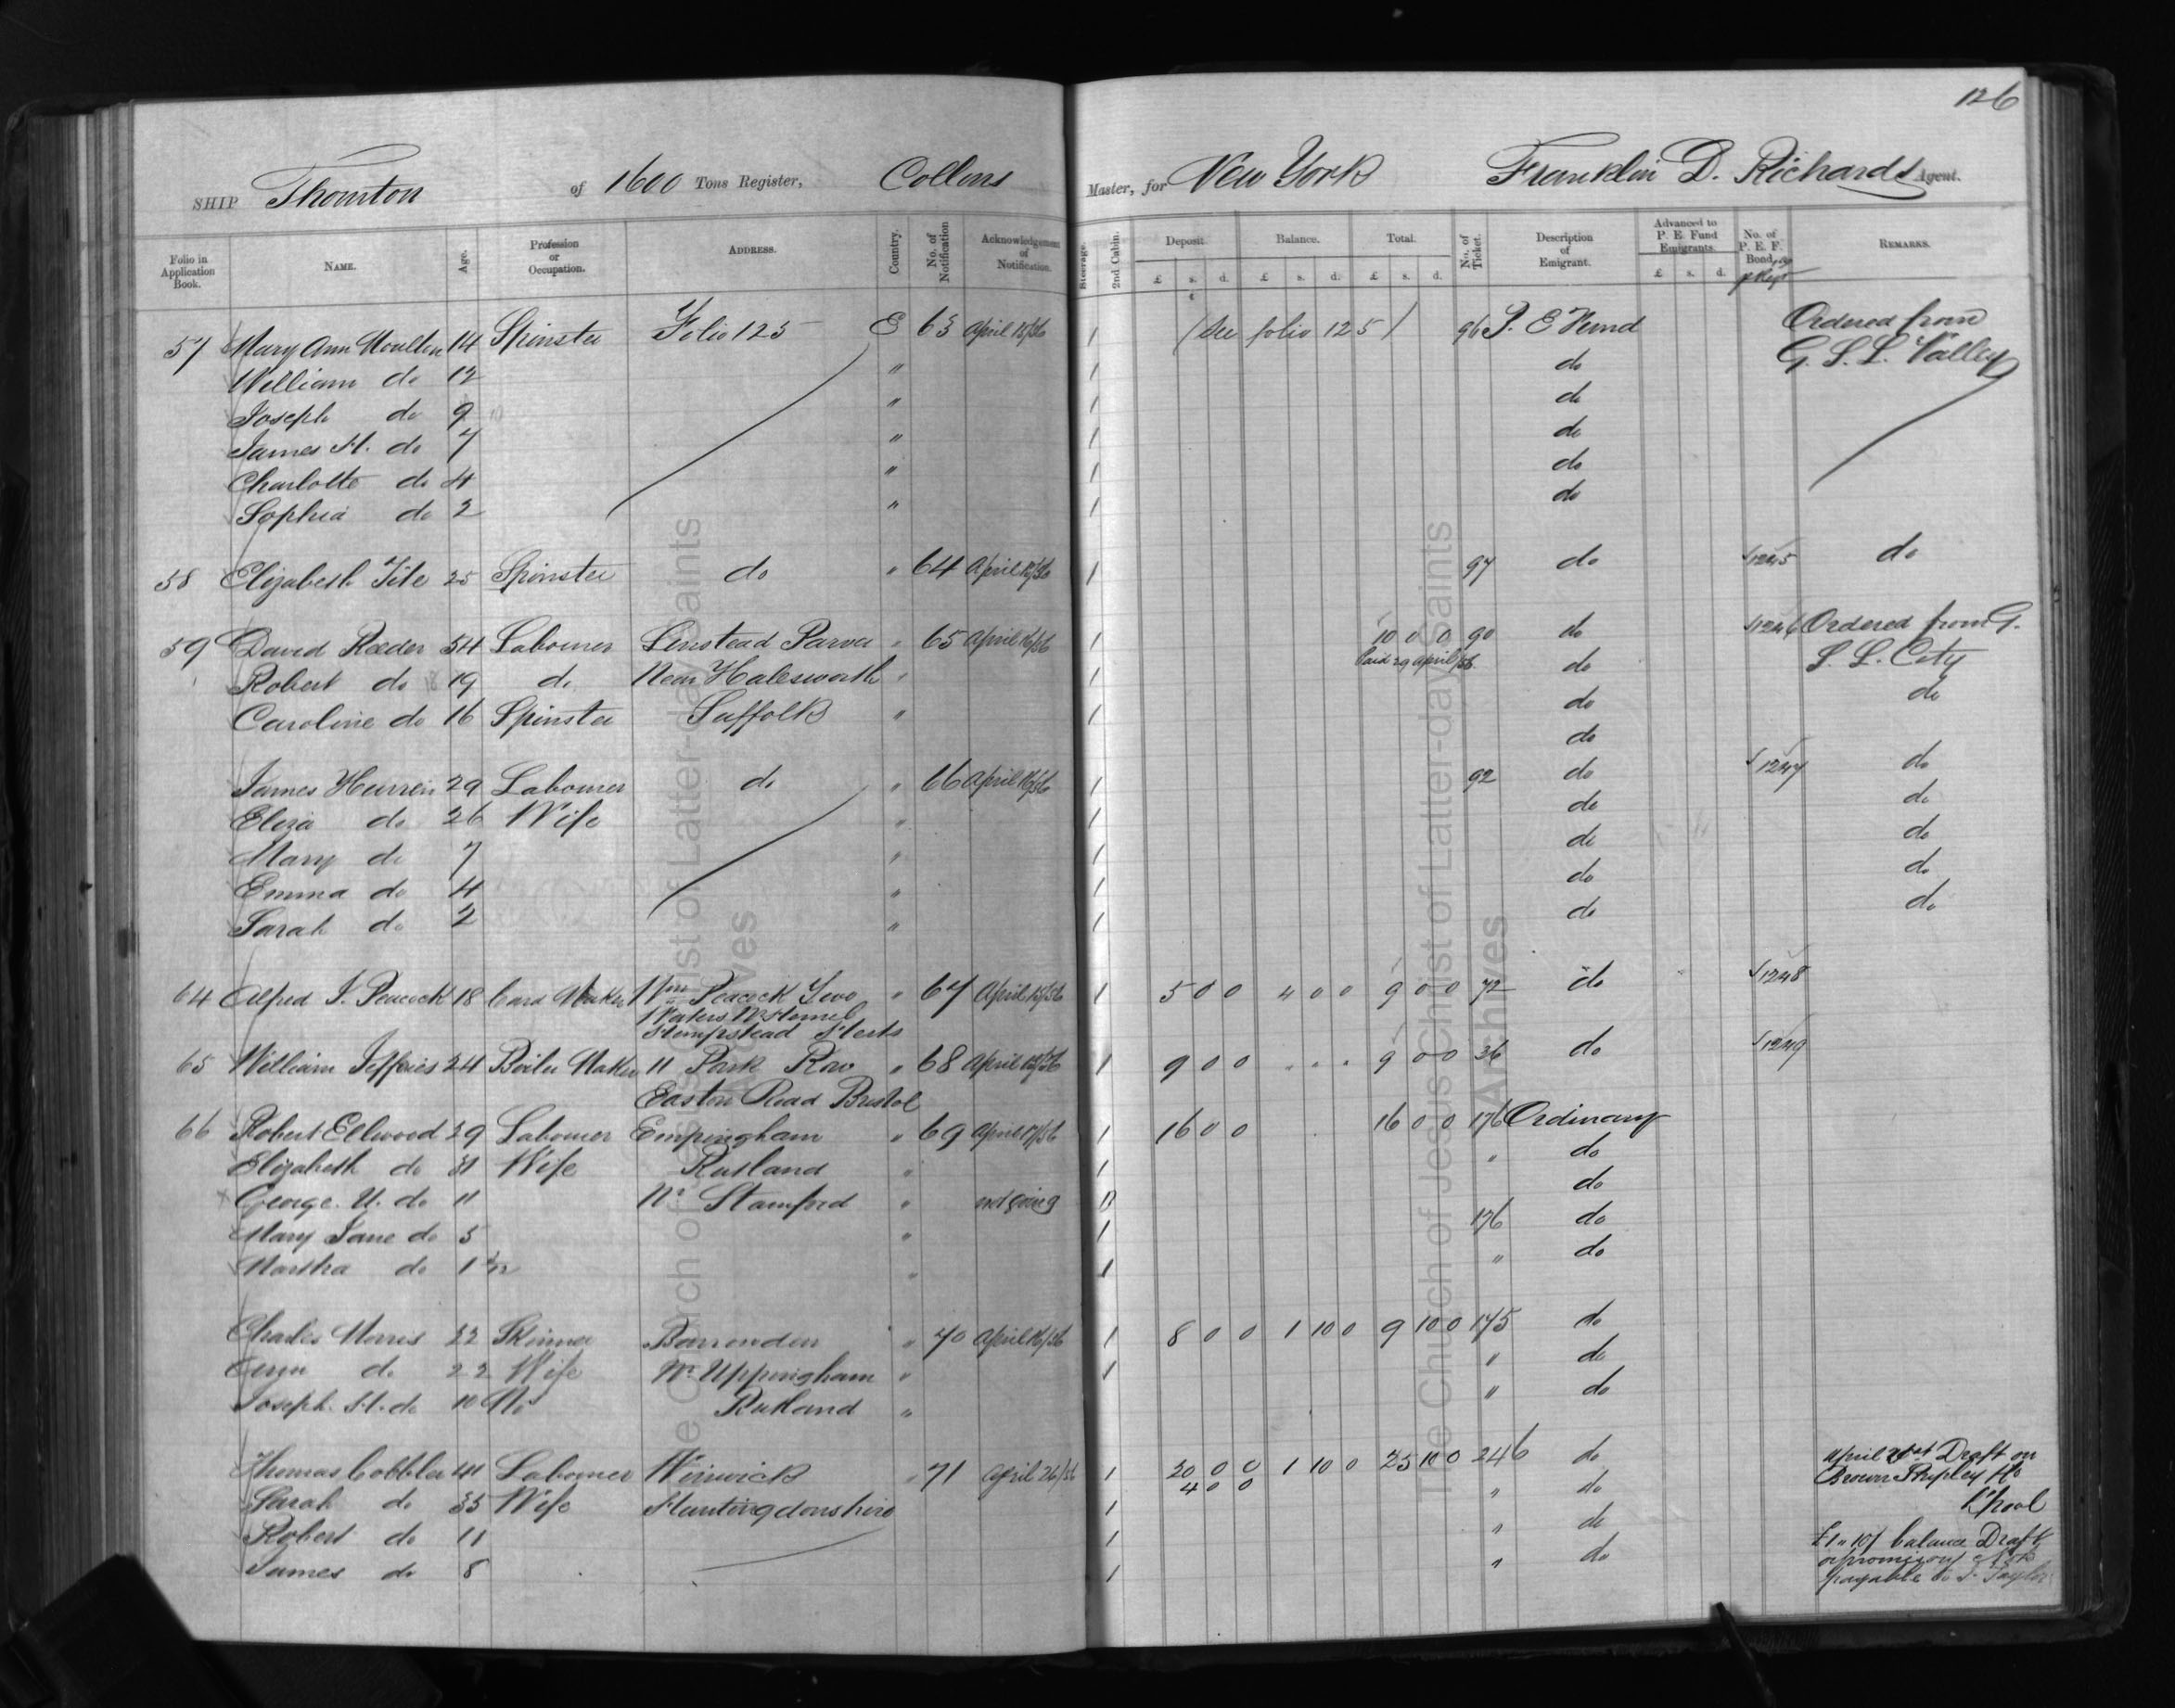 126
SHIP Thornton of 1600 Tons Register, Collins Master, for New York Franklin D. Richards Agent.
Folio in Application Book. NAME. Age. Profession or Occupation. ADDRESS. Country. No. of Notification Acknowledgement of Notification. Steerage. 2nd Cabin. Deposit £ s. d. Balance. £ s. d. Total. £ s. d. No. of Ticket. Description of Emigrant. Advanced to P. E. Fund Emigrants. £ s. d. No. of P. E. F. Bond, REMARKS.
57 Mary Ann Moulton 14 Spinster Folio 125 E 63 April 15/56 1 (See folio 125) 96 P. E Fund Ordered from
William do 12 " 1 do G. S. L. Valley
Joseph do 9 " 1 do
James H. do 7 " 1 do
Charlotte do 4 " 1 do
Sophia do 2 " 1 do
58 Elizabeth Tite 25 Spinster do " 64 April 16/56 1 97 do 1245 do
59 David Reeder 54 Labourer Linstead Parva " 65 April 16/56 1 10 0 0 90 do 1246 Ordered from G.
Robert do 19 do Near Halesworth " 1 Paid 29 April/56 do S. L. City
Caroline do 16 Spinster Suffolk " 1 do do
do
James Hurren 29 Labourer do " 66 April 16/56 1 92 do 1247 do
Eliza do 26 Wife " 1 do do
Mary do 7 " 1 do do
Emma do 4 " 1 do do
Sarah do 2 " 1 do do
64 Alfred J. Peacock 18 Card Maker Wm Peacock Two " 67 April 15/56 1 5 0 0 4 0 0 9 0 0 72 do 1248
Waters Nr Hemel
Hempstead Herts
65 William Jeffries 24 Boiler Maker 11 Park Row " 68 April 15/56 1 9 0 0 . . . 9 0 0 36 do 1249
Easton Road Bristol
66 Robert Ellwood 29 Labourer Empingham " 69 April 17/56 1 16 0 0 16 0 0 176 Ordinary
Elizabeth do 31 Wife Rutland " 1 " do
George. U. do 11 Nr Stamford " not going do
Mary Jane do 5 " 1 176 do
Martha do 1 " 1 " do
Charles Morris 22 Skinner Barrowden " 70 April 16/56 1 8 0 0 1 10 0 9 10 0 175 do
do 22 Wife Nr Uppingham " 1 " do
Joseph. H. do 10 Mo Rutland " " do
Thomas Cobbler 41 Labourer Winwick " 71 April 26/56 1 20 0 0 1 10 0 25 10 0 246 do April 21st Draft on
Sarah do 35 Wife Huntingdonshire 1 4 0 0 " do Brown Shipley & Co
Robert do 11 1 " do L'pool
James do 8 1 " do £1 " 10/ balance Draft
or promissory Note
payable to J. Taylor
The Church of Jesus Christ of Latter-day Saints
Archives
The Church of Jesus Christ of Latter-day Saints
Archives